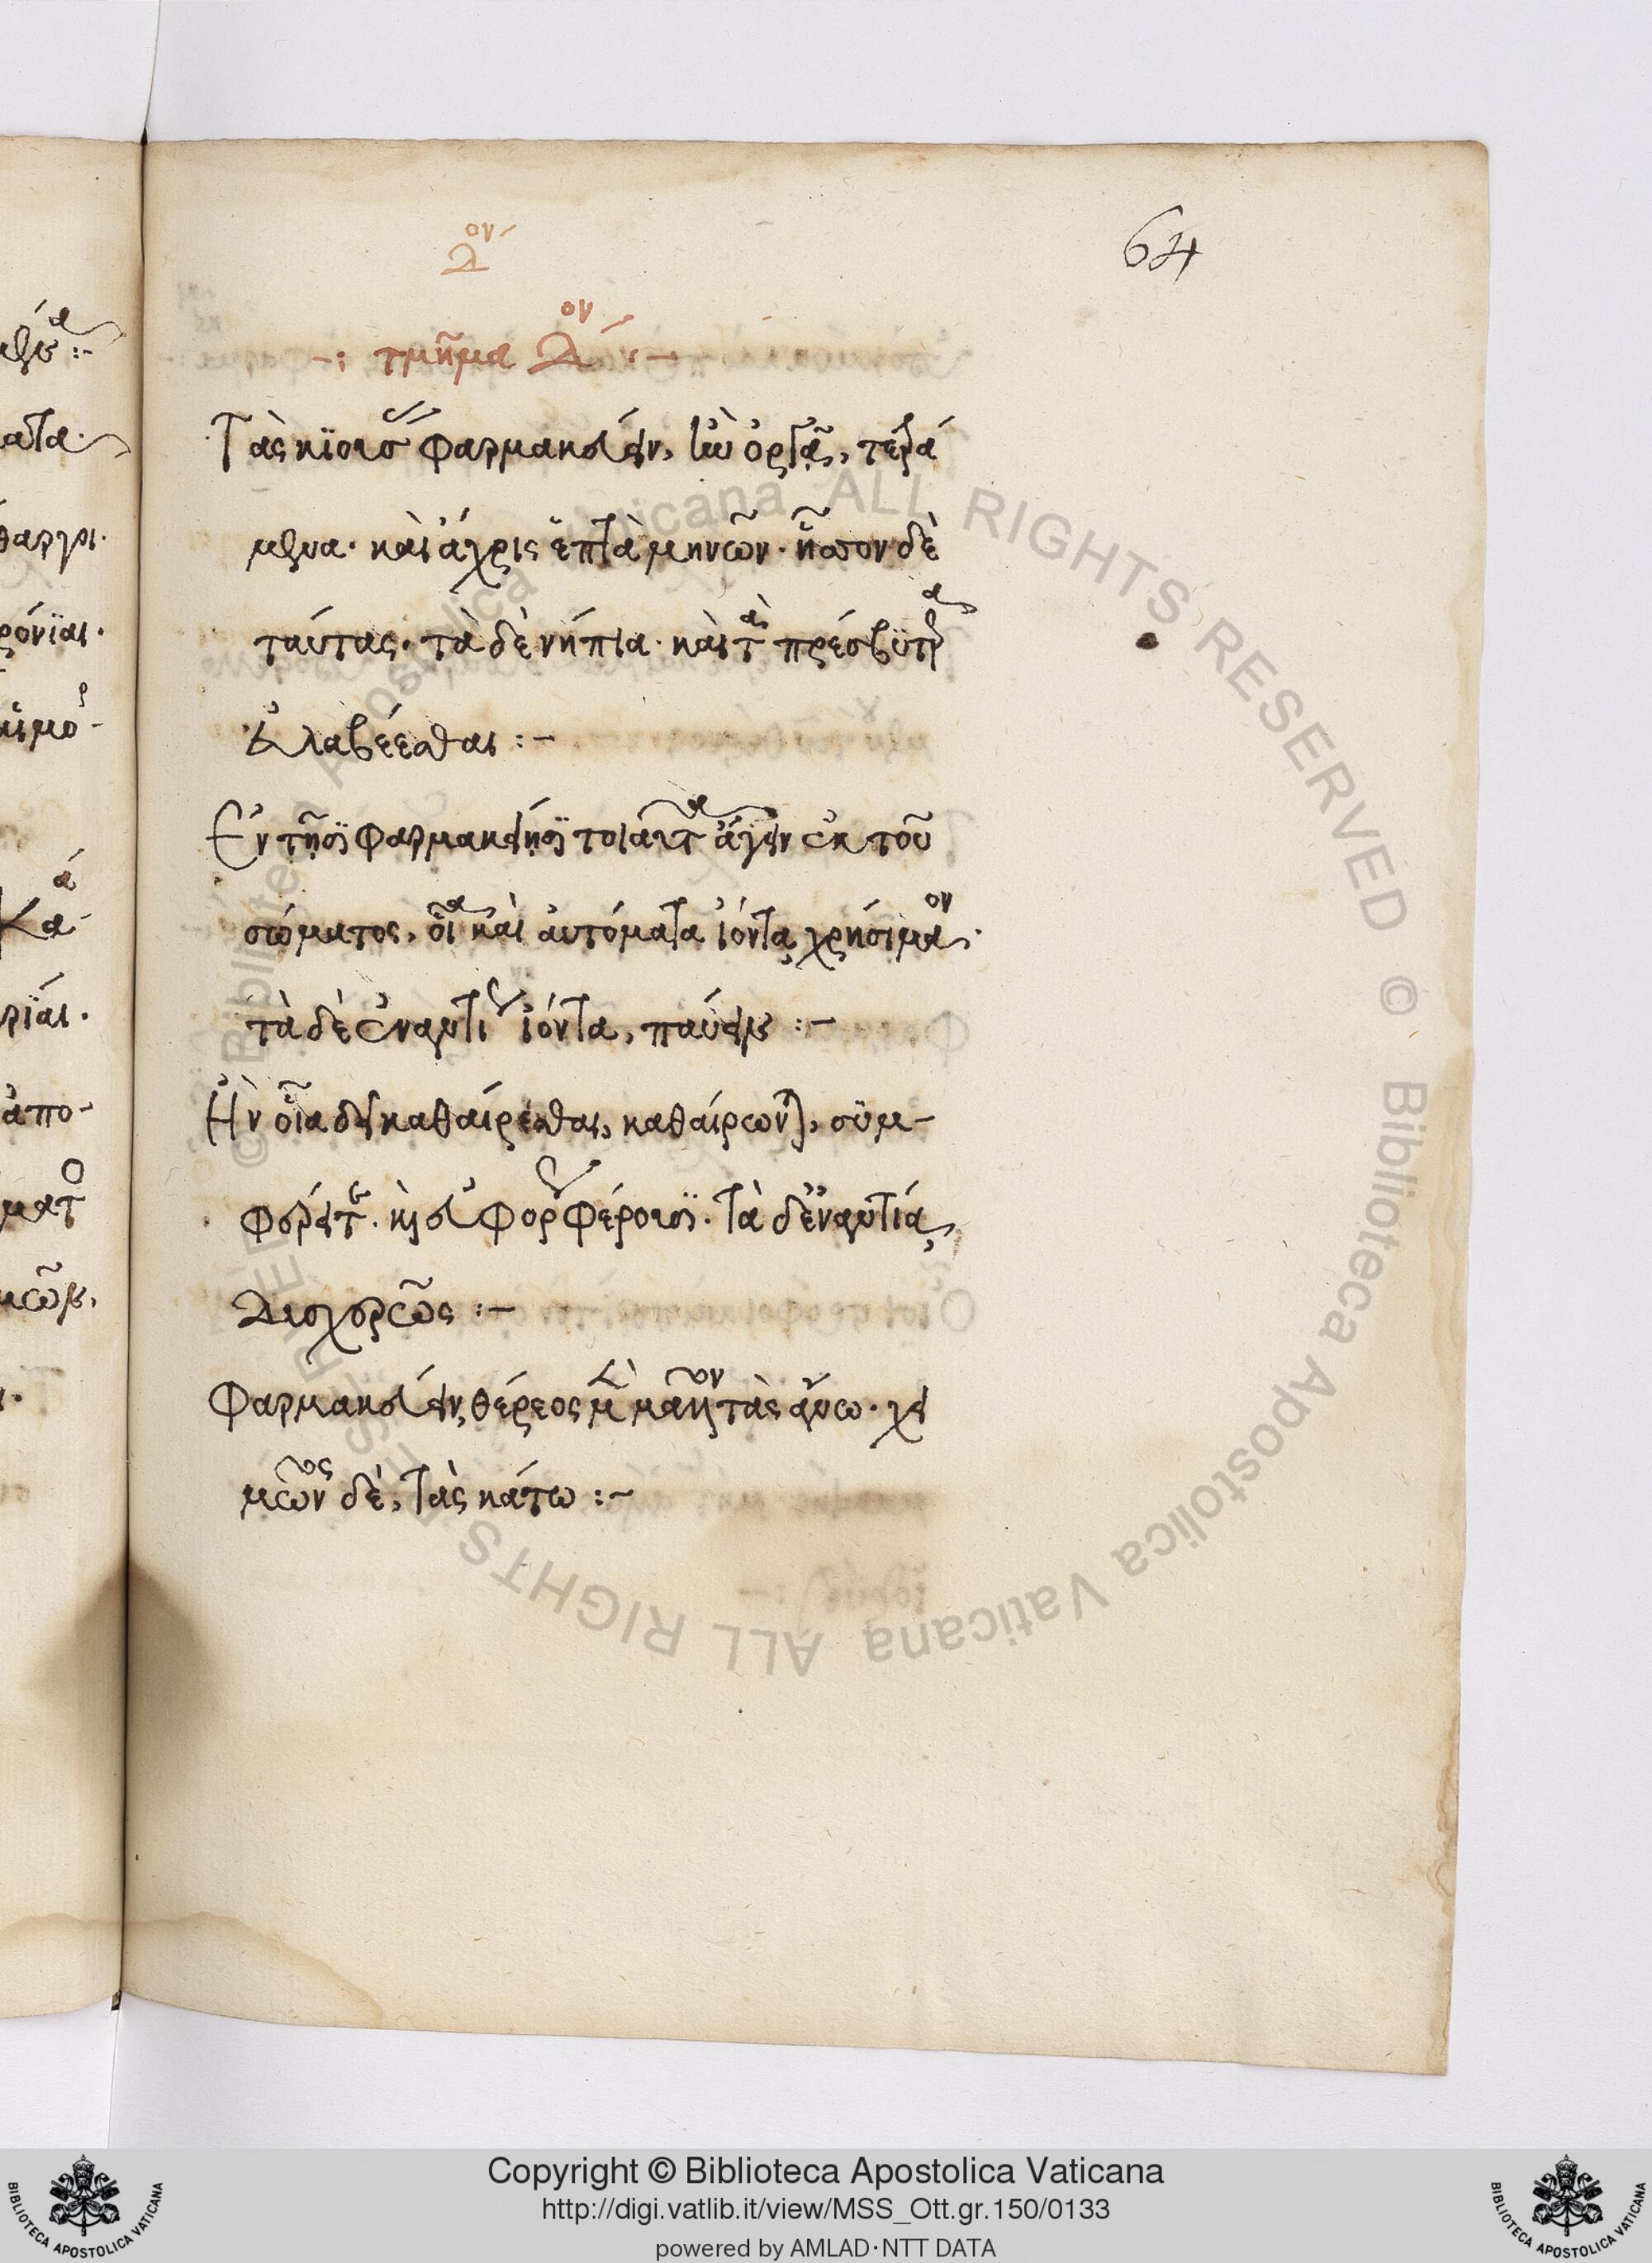 64
δ ον
-: τμῆμα Δ ον :-
Τὰς κϊούσας φαρμακεύειν, ἢν ὀργᾶ, τετρά
μηνα· καὶ ἄχρις ἑπτὰ μηνῶν· ἧσσον δὲ
ταύτας· τὰ δὲ νήπια· καὶ τὰ πρεσβύτερα
εὐλαβέεσθαι :-
Ἐν τῇσϊ φαρμακείῃσϊ τοιαῦτα ἄγειν ἐκ τοῦ
σώματος, οἷα καὶ αὐτόματα ἰόντα χρήσιμον·
τὰ δὲ ἐναντίως ἰόντα, παύειν :-
Ἢν οἷα δεῖ καθαίρεσθαι, καθαίρωνται, σϋμ-
φέρει τε· κὴ εὐφόρως φέρουσϊ· τὰ δ' ἐναντία,
δυσχερῶς :-
Φαρμακεύειν, θέρεος μὲν μᾶλλον τὰς ἄνω· χει
μῶνος δὲ, τὰς κάτω :-
© Biblioteca Apostolica Vaticana ALL RIGHTS RESERVED © Biblioteca Apostolica Vaticana ALL RIGHTS RESERVED
Copyright © Biblioteca Apostolica Vaticana
http://digi.vatlib.it/view/MSS_Ott.gr.150/0133
powered by AMLAD·NTT DATA
BIBLIOTECA APOSTOLICA VATICANA
BIBLIOTECA APOSTOLICA VATICANA